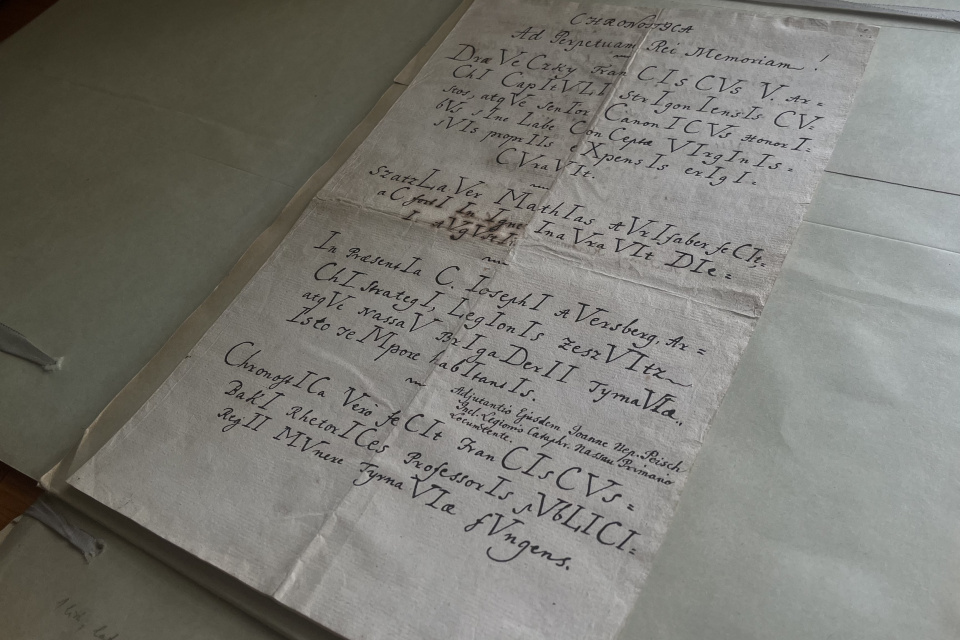 CHRONOSTICA
Ad Perpetuam Rei Memoriam !
DraVeCzky FranCIsCVs V. Ar=
ChI CapItVLI StrIgonIensIs CV=
stos, atqVe senIor CanonICVs HonorI=
bVs sIne Labe ConCeptæ VIrgInIs=
sVIs proprIIs eXpensIs erIgI=
CVraVIt.
SzatzLaVer MathIas aVrIfaber feCIt,
aC fortI In Igne InaVraVIt DIe=
I. aVgVstI.
In PræsentIa C. IosephI aVersberg, Ar=
ChI strategI, LegIonIs ZeszVItz
atqVe NassaV BrIgaDerII TyrnaVIæ,
Isto teMpore habItantIs.
Adjutantio Ejusdem Joanne Nep. Poisch
Incl. Legionis Cataphr. Nassau Primario
Locumtente.
ChronostICa Vero feCIt FranCIsCVs=
BakI RhetorICes ProfessorIs pVbLICI=
RegII MVnere TyrnaVIæ fVngens.